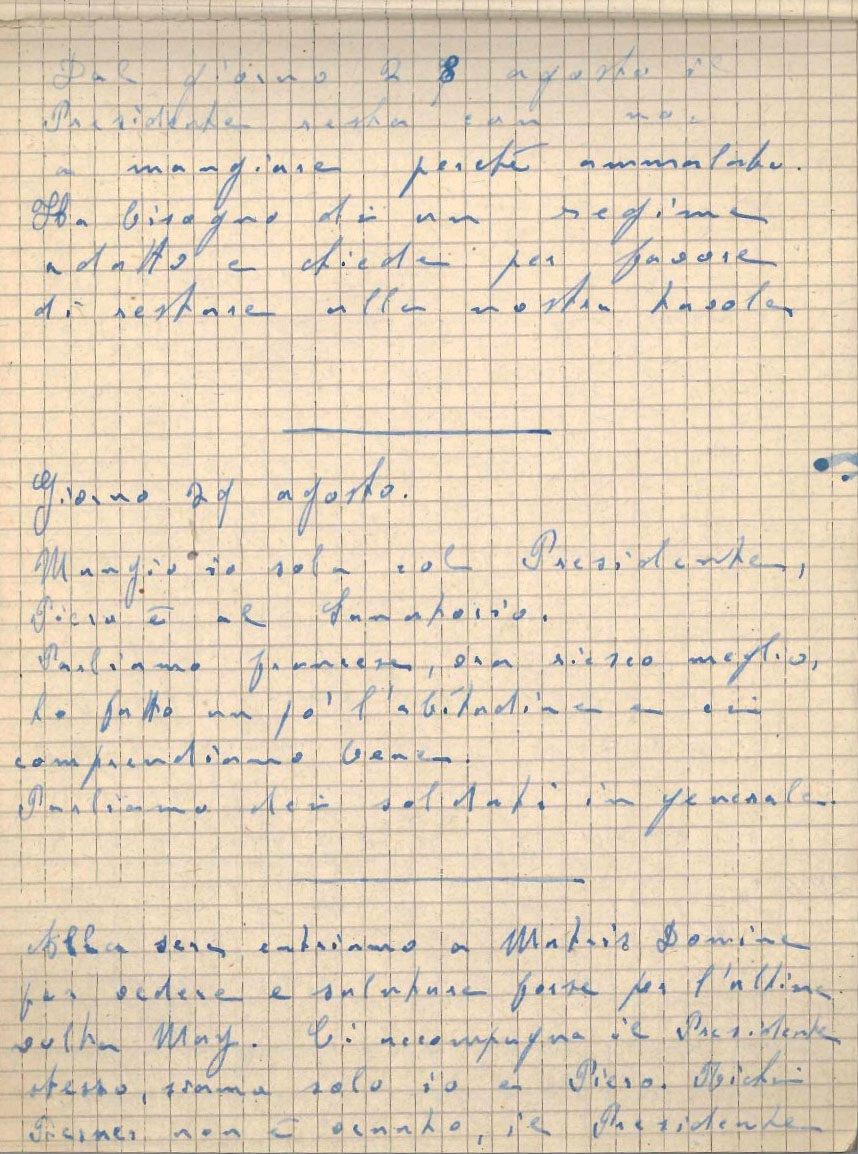 Dal giorno 28 agosto il
Presidente resta con noi
a mangiare perchè ammalato.
Ha bisogno di un regime
adatto e chiede per favore
di restare alla nostra tavola
Giorno 29 agosto.
Mangio io sola col Presidente,
Piero è al Sanatorio.
Parliamo francese, ora riesco meglio,
ho fatto un po' l'abitudine e ci
comprendiamo bene.
Parliamo dei soldati in generale.
Alla sera entriamo a Matris Domine
per vedere e salutare forse per l'ultima
volta May. Ci accompagna il Presidente
stesso, siamo solo io e Piero.
non è venuto, il Presidente